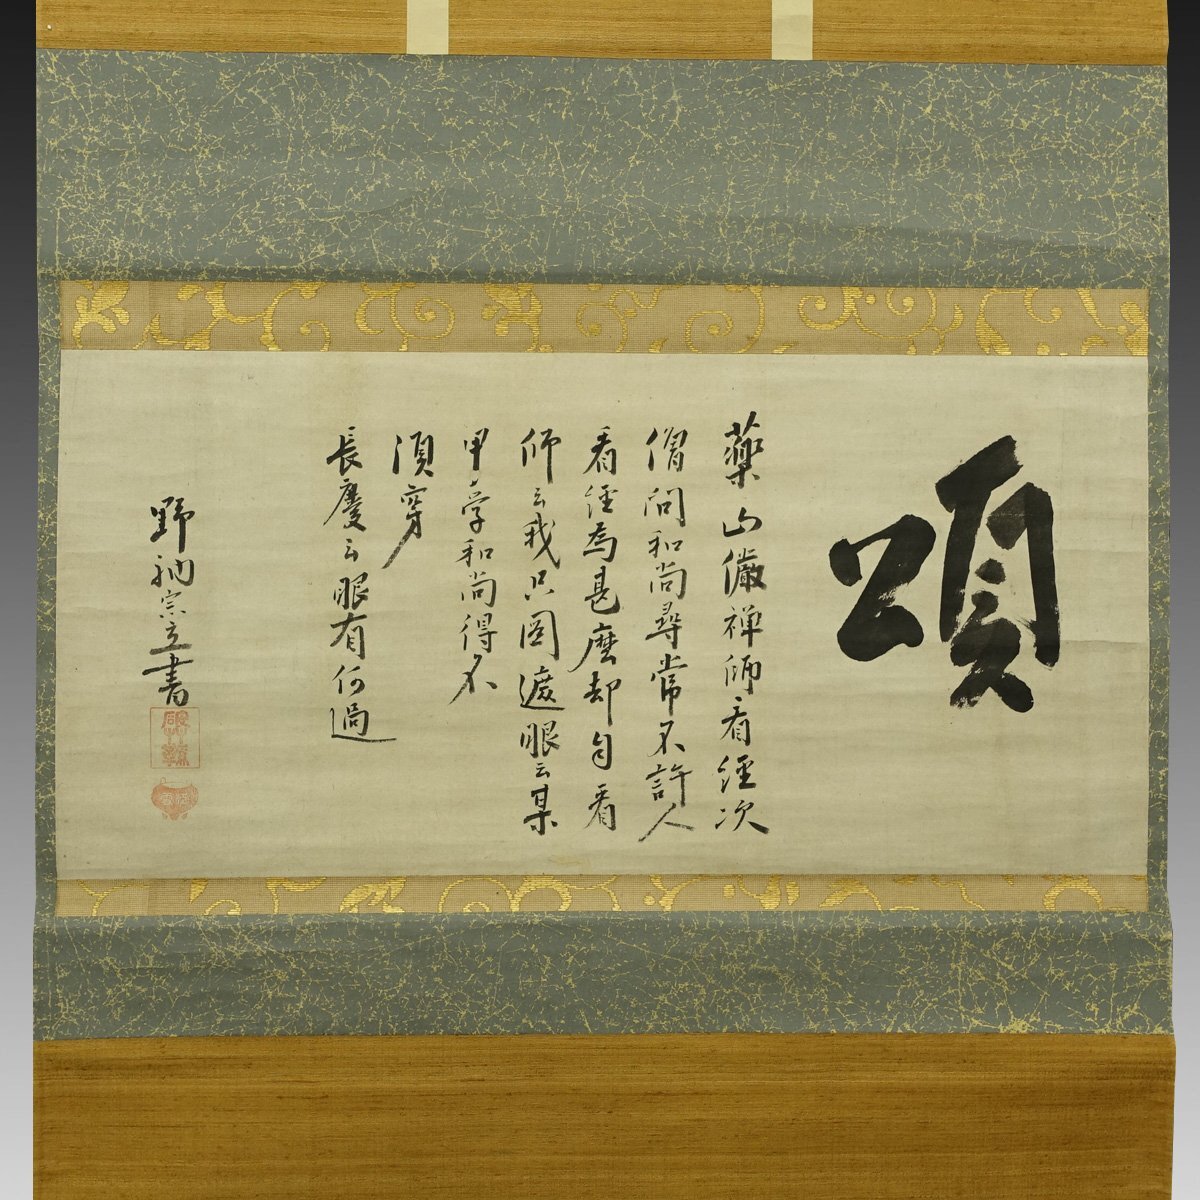 頌
藥山儼禅師看經次
僧問和尚尋常不許人
看經為甚麼却自看
師云我只圖遮眼云某
甲学和尚得不
須穿
長慶云眼有何過
野衲宗立書